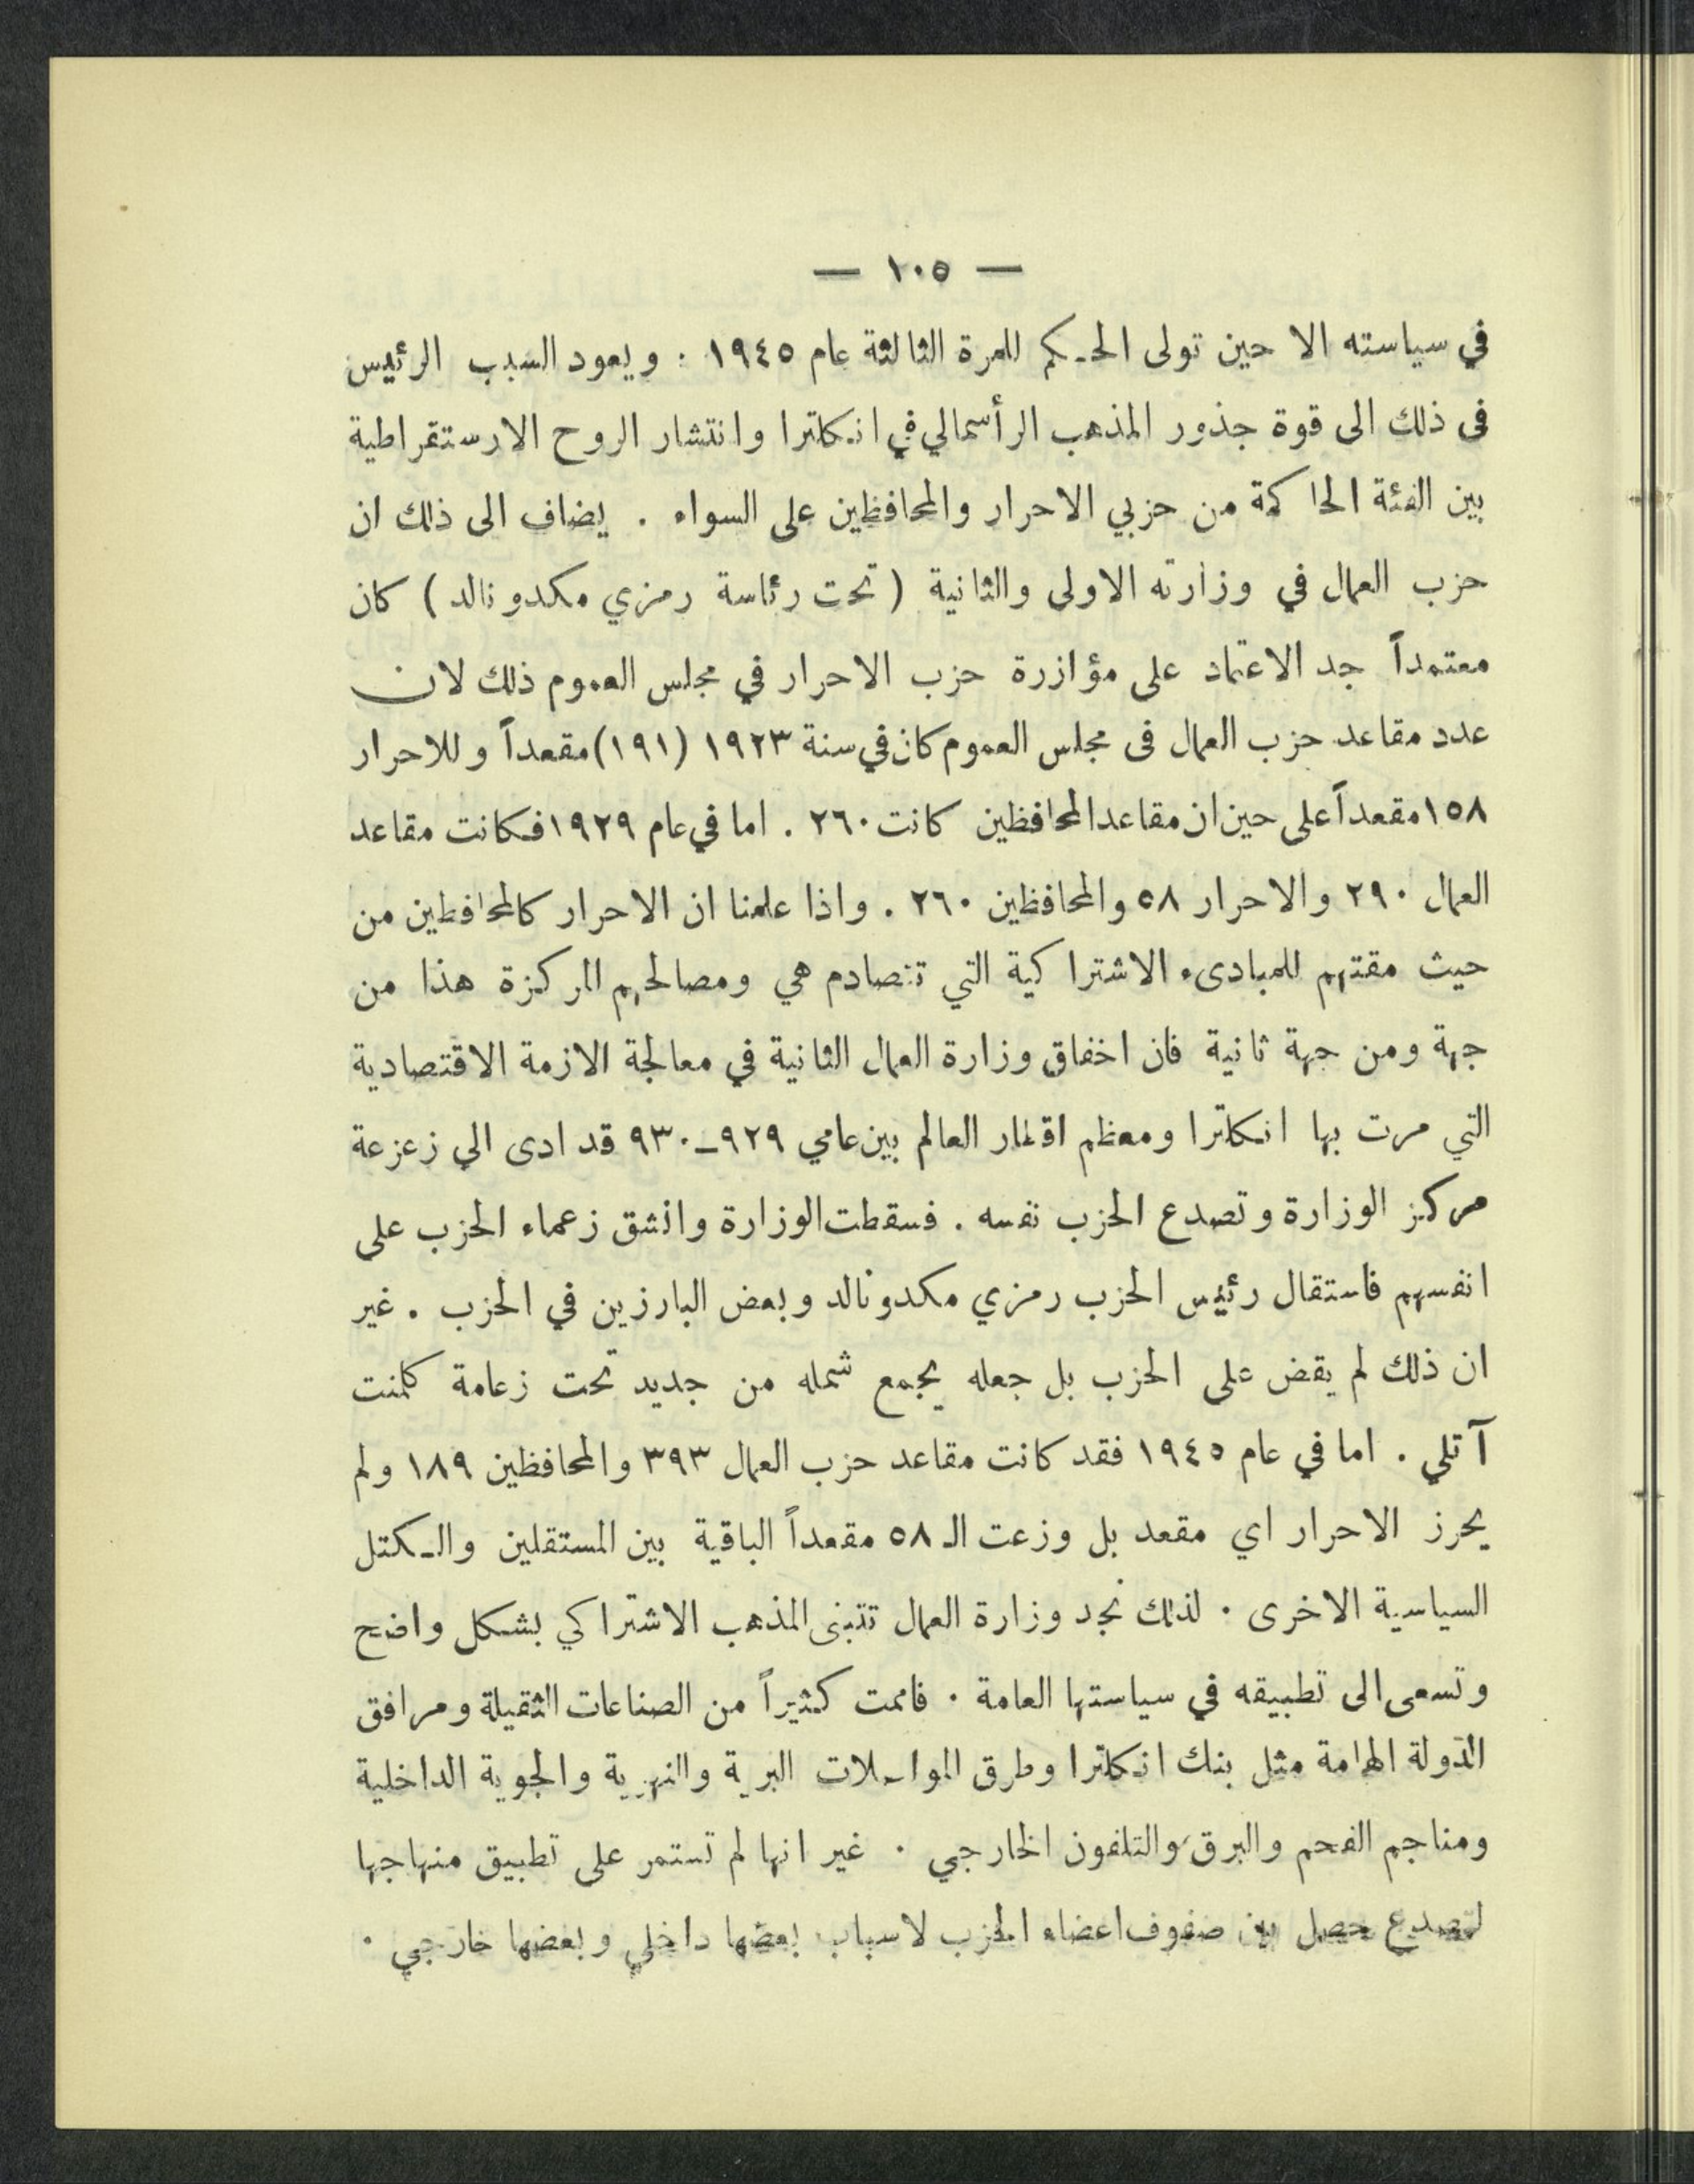 — ١٠٥ —
في سياسته الا حين تولى الحكم للمرة الثالثة عام ١٩٤٥ . ويعود السبب الرئيس
فى ذلك الى قوة جذور المذهب الرأسمالي في انكلترا وانتشار الروح الارستقراطية
بين الفئة الحاكمة من حزبي الاحرار والمحافظين على السواء . يضاف الى ذلك ان
حزب العمال في وزارته الاولى والثانية ( تحت رئاسة رمزي مكدونالد ) كان
معتمداً جد الاعتماد على مؤازرة حزب الاحرار في مجلس العموم ذلك لان
عدد مقاعد حزب العمال فى مجلس العموم كان في سنة ١٩٢٣ (١٩١) مقعداً وللاحرار
١٥٨ مقعداً على حين ان مقاعد المحافظين كانت ٢٦٠ . اما في عام ١٩٢٩ فكانت مقاعد
العمال ٢٩٠ والاحرار ٥٨ والمحافظين ٢٦٠ . واذا علمنا ان الاحرار كالمحافظين من
حيث مقتهم للمبادىء الاشتراكية التي تتصادم هي ومصالحهم المركزة هذا من
جهة ومن جهة ثانية فان اخفاق وزارة العمال الثانية في معالجة الازمة الاقتصادية
التي مرت بها انكلترا ومعظم اقطار العالم بين عامي ٩٢٩ــ٩٣٠ قد ادى الي زعزعة
مركز الوزارة وتصدع الحزب نفسه . فسقطت الوزارة وانشق زعماء الحزب على
انفسهم فاستقال رئيس الحزب رمزي مكدونالد وبعض البارزين في الحزب . غير
ان ذلك لم يقض على الحزب بل جعله يجمع شمله من جديد تحت زعامة كلمنت
آتلي . اما في عام ١٩٤٥ فقد كانت مقاعد حزب العمال ٣٩٣ والمحافظين ١٨٩ ولم
يحرز الاحرار اي مقعد بل وزعت الـ ٥٨ مقعداً الباقية بين المستقلين والكتل
السياسية الاخرى . لذلك نجد وزارة العمال تتبنى المذهب الاشتراكي بشكل واضح
وتسعى الى تطبيقه في سياستها العامة . فاممت كثيراً من الصناعات الثقيلة ومرافق
الدولة الهامة مثل بنك انكلترا وطرق المواصلات البرية والنهرية والجوية الداخلية
ومناجم الفحم والبرق والتلفون الخارجي . غير انها لم تستمر على تطبيق منهاجها
لتصدع حصل بين صفوف اعضاء الحزب لاسباب بعضها داخلي وبعضها خارجي .